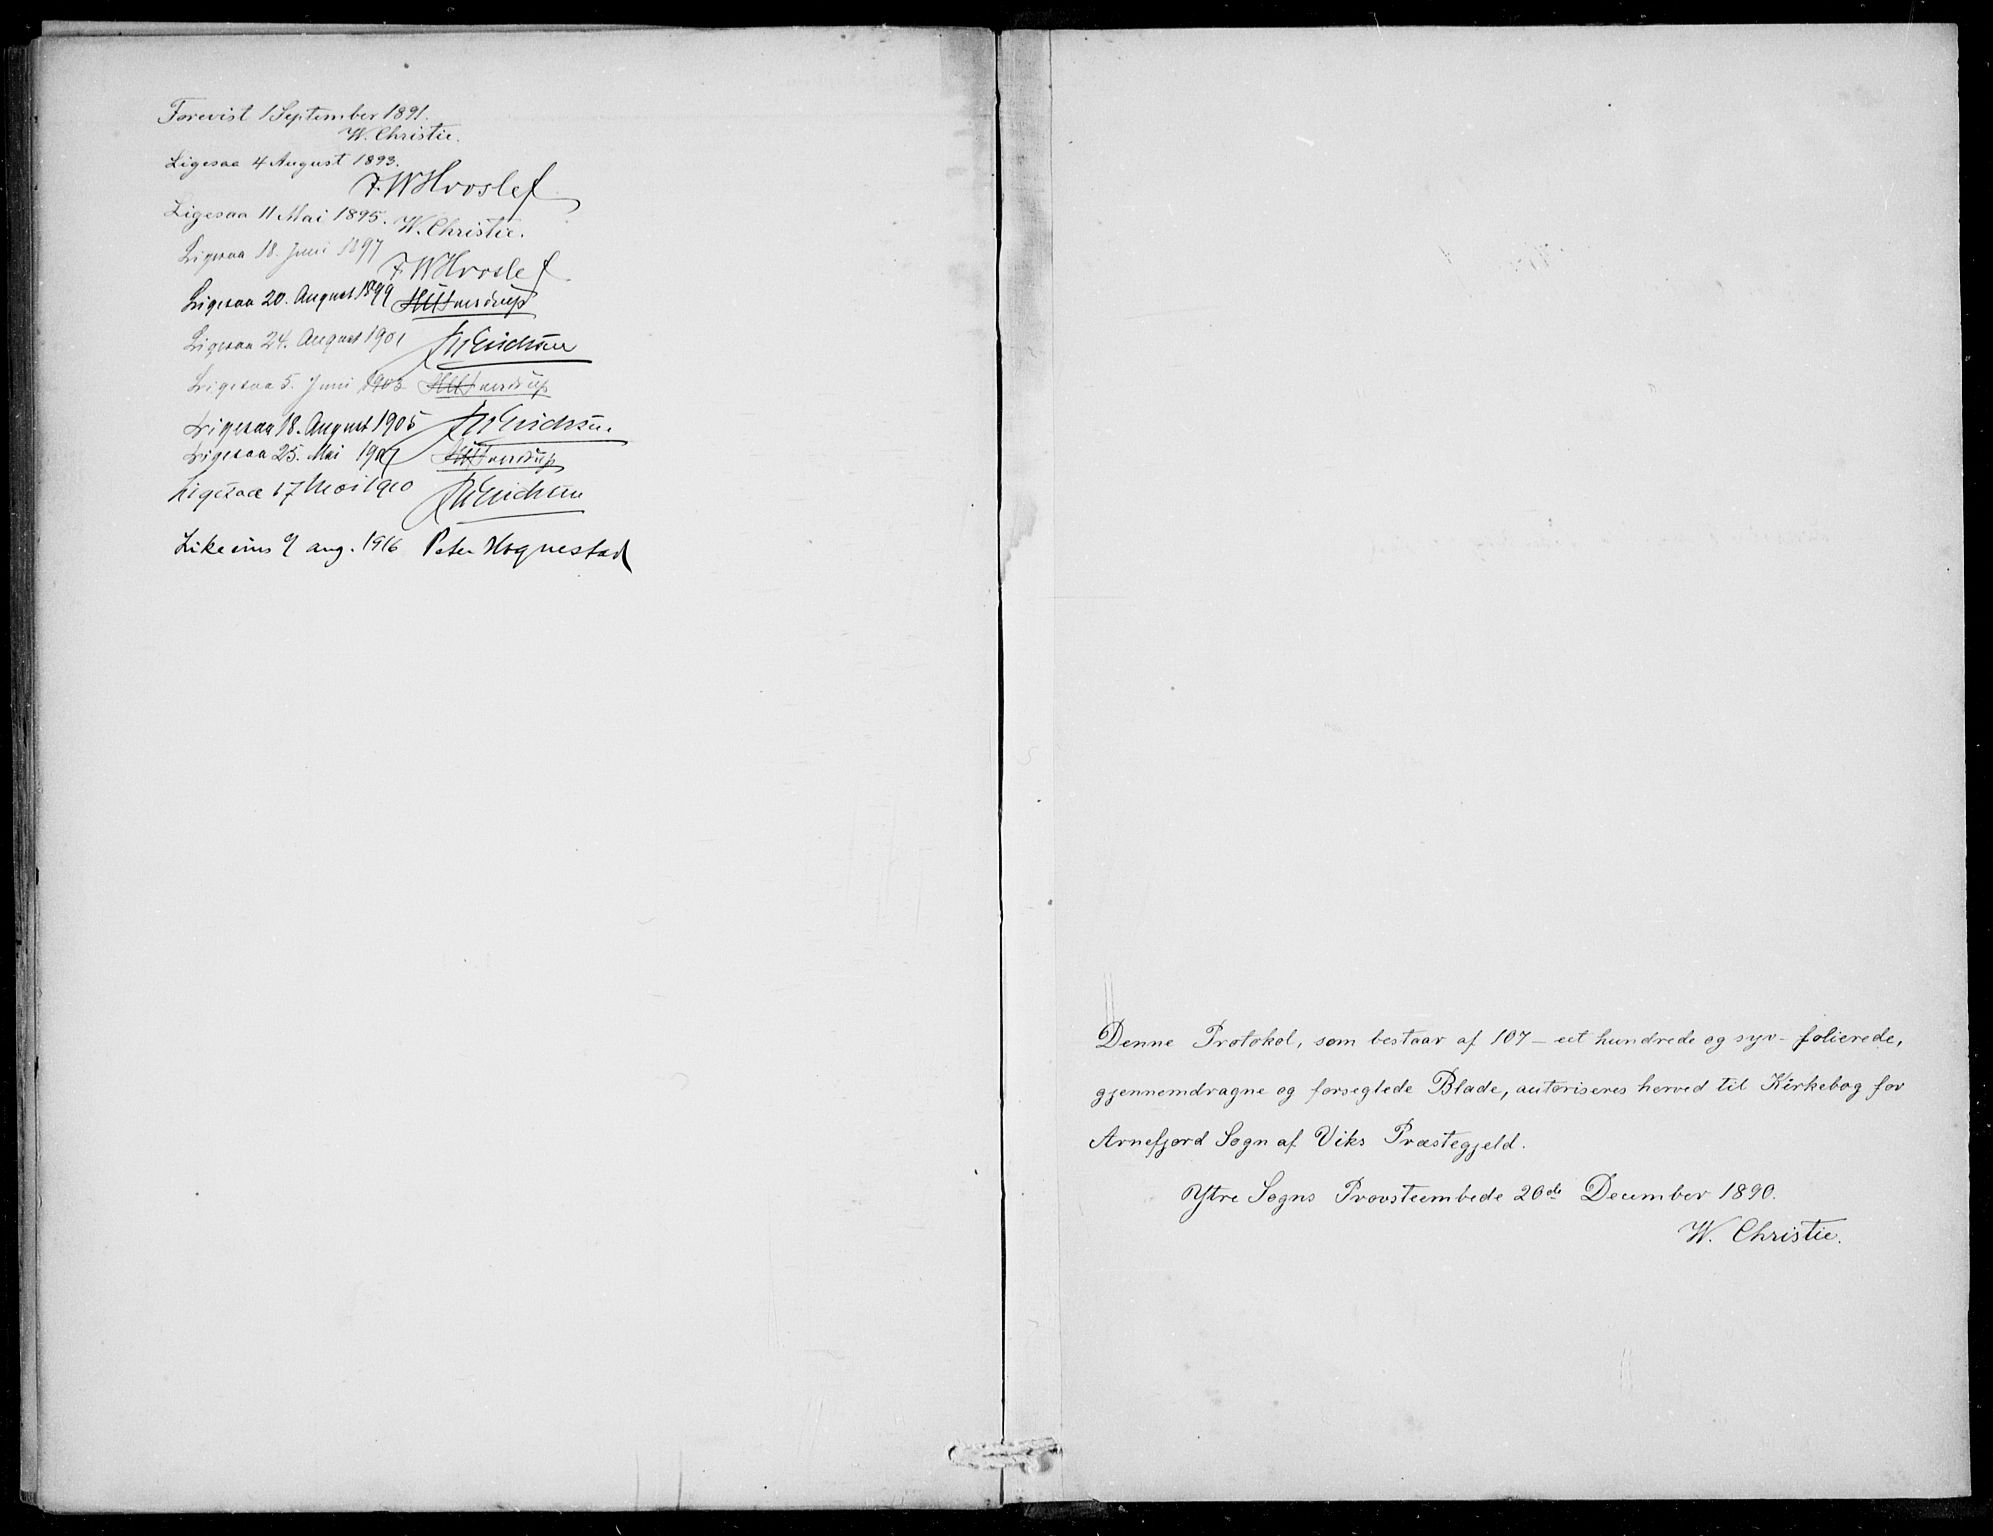 Forevist 1 September 1891.
W. Christie.
Ligesaa 4 August 1893.
F. W Hvoslef
Ligesaa 11 Mai 1895. W. Christie.
Ligesaa 18. Juni 1897
F. W Hvoslef
Ligesaa 20. August 1899
Ligesaa 24. August 1901 Erichsen
Ligesaa 5. Juni 1903
Ligesaa 18. August 1905 Erichsen.
Ligesaa 25. Mai 1907
Ligesaa 17 Mai 1910 Erichsen
Likeeins 9 aug. 1916 Peter Hognestad
Denne Protokol, som bestaar af 107 - eet hundrede og syv - folierede,
gjennemdragne og forseglede Blade, autoriseres herved til Kirkebog for
Arnefjord Sogn af Viks Præstegjeld.
Ytre Sogns Provsteembede 20de December 1890.
W. Christie.